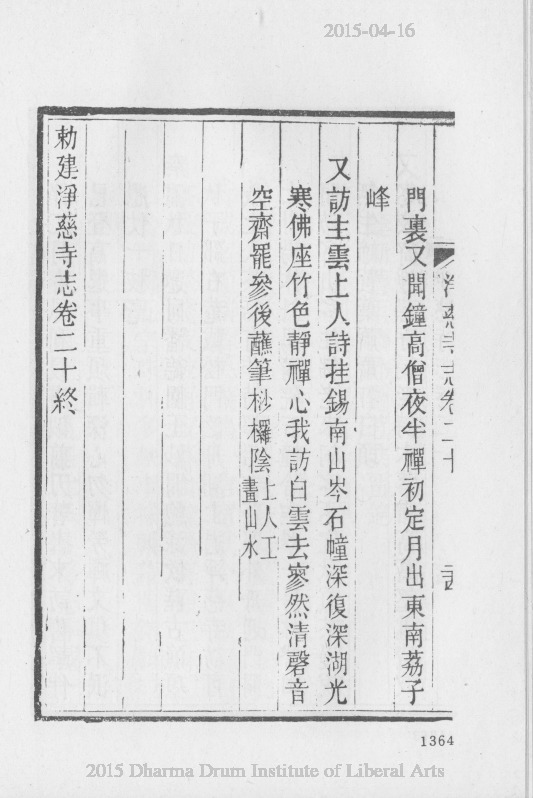 2015-04-16
淨慈寺志卷二十
門裏又聞鐘高僧夜半禪初定月出東南荔子
峰
又訪主雲上人詩挂錫南山岑石幢深復深湖光
寒佛座竹色靜禪心我訪白雲去寥然清磬音
空齋罷參後蘸筆桫欏陰上人工畫山水
勅建淨慈寺志卷二十終
1364
2015 Dharma Drum Institute of Liberal Arts